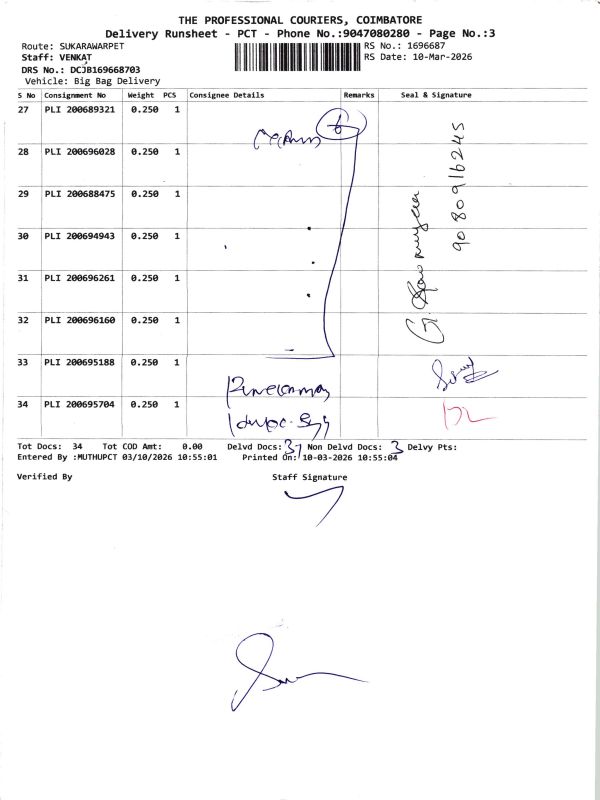 THE PROFESSIONAL COURIERS, COIMBATORE
Delivery Runsheet - PCT - Phone No.:9047080280 - Page No.:3
Route: SUKARAWARPET
RS No.: 1696687
Staff: VENKAT
RS Date: 10-Mar-2026
DRS No.: DCJB169668703
Vehicle: Big Bag Delivery
S No Consignment No Weight PCS Consignee Details Remarks Seal & Signature
27 PLI 200689321 0.250 1
6
28 PLI 200696028 0.250 1
9080916245
29 PLI 200688475 0.250 1
30 PLI 200694943 0.250 1
31 PLI 200696261 0.250 1
32 PLI 200696160 0.250 1
33 PLI 200695188 0.250 1
34 PLI 200695704 0.250 1
Tot Docs: 34 Tot COD Amt: 0.00 Delvd Docs: 31 Non Delvd Docs: 3 Delvy Pts:
Entered By :MUTHUPCT 03/10/2026 10:55:01 Printed On: 10-03-2026 10:55:04
Verified By Staff Signature